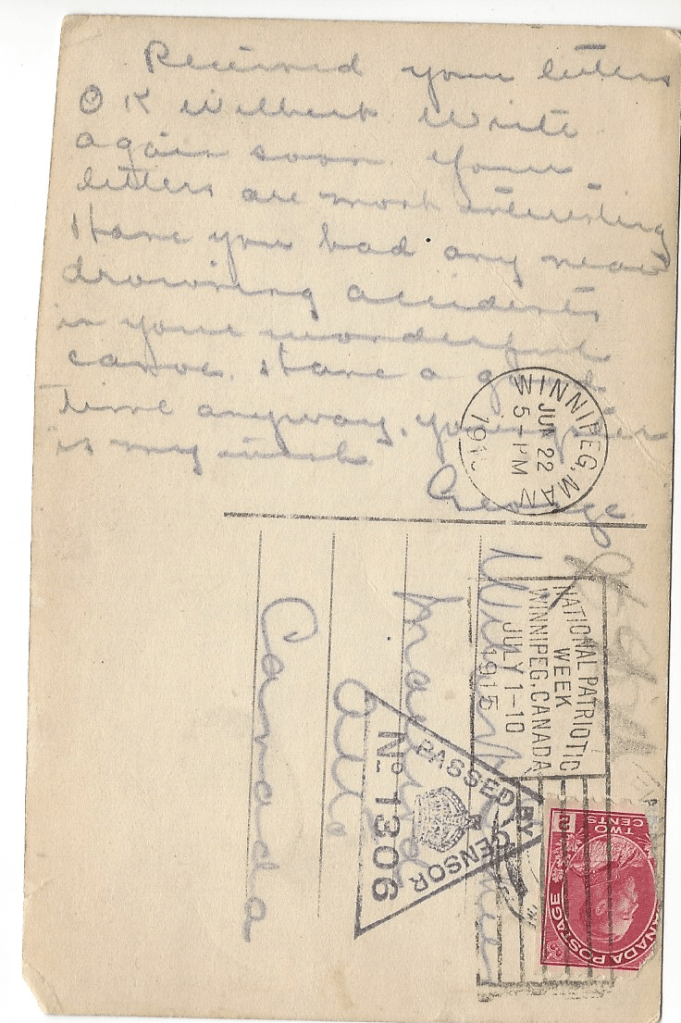 Received your letters
OK Wilbert Write
again soon. Your
letters are most interesting
Have you had any near
drowning accidents
in your wonderful
canoe. Have a good
time anyway, youngster
is my wish.
George
WINNIPEG, MAN
JUN 22
5-PM
191
NATIONAL PATRIOTIC
WEEK
WINNIPEG, CANADA
JULY 1-10
1915
PASSED BY CENSOR
No 1306
Canada
CANADA POSTAGE
TWO
CENTS
2